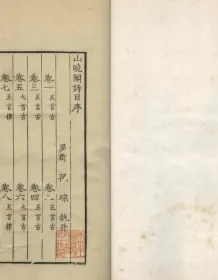 山曉閣詩目序
吴郡 孫琮 執升
卷一 五言古
卷二 五言古
卷三 五言古
卷四 五言古
卷五 七言古
卷六 七言古
卷七 五言律
卷八 五言律